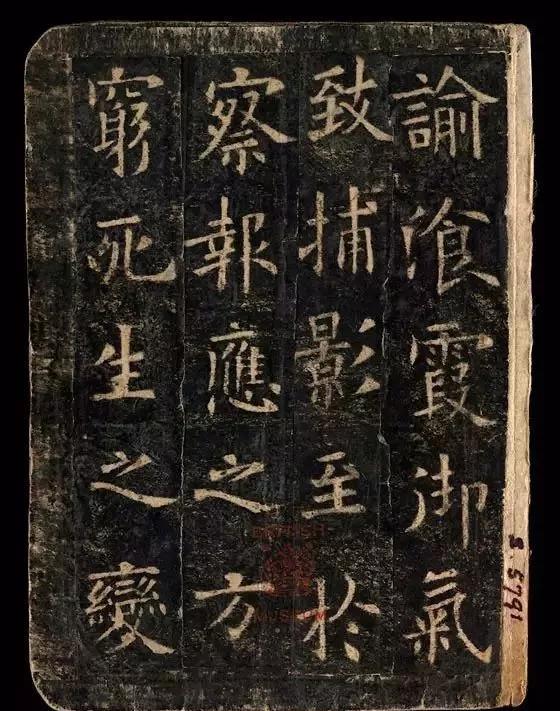 諭飡霞御氣
致捕影至於
察報應之方
窮死生之變
S 5791
MUSEUM